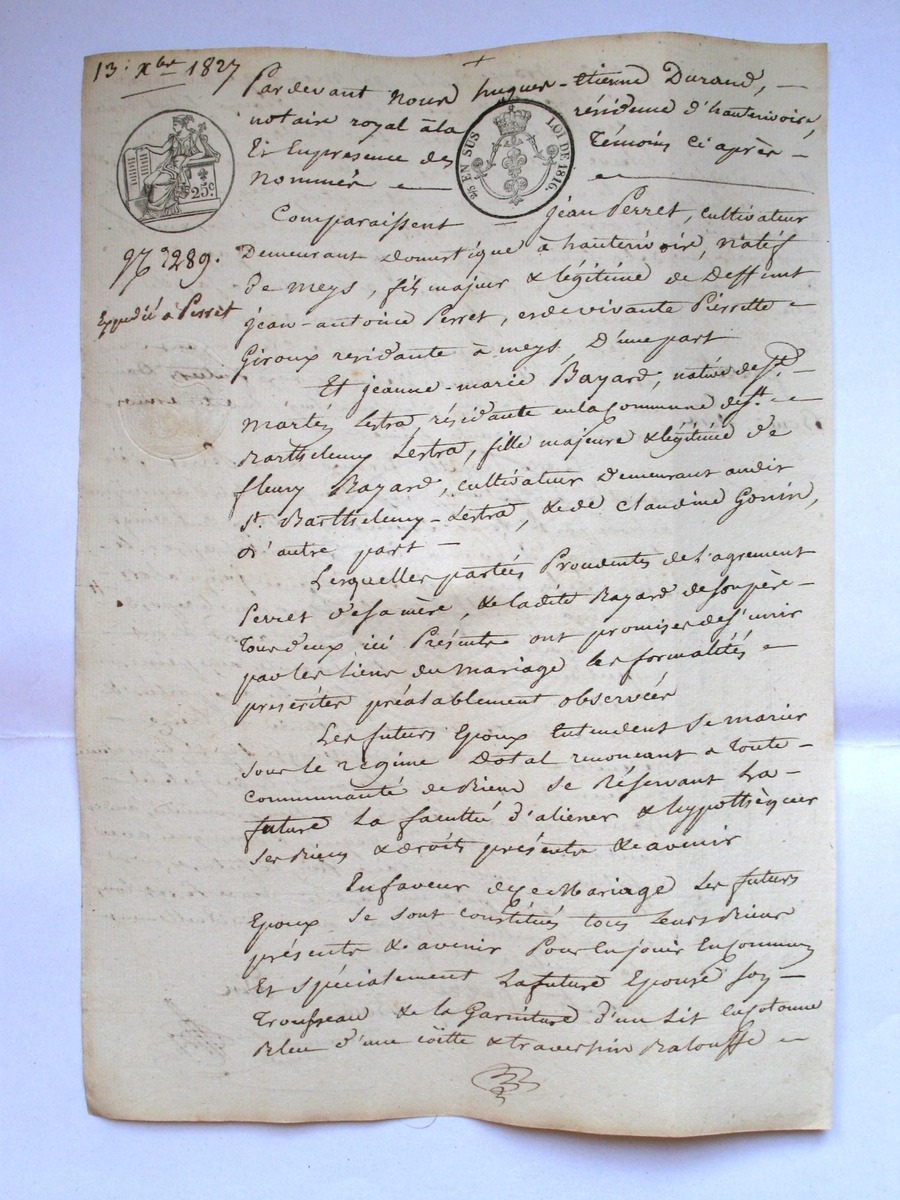 13. Xbre 1827
Pardevant nous hugues-étienne Durand,
notaire royal à la résidence d'hauterivoire,
Et En présence des Témoins Ci après
nommés
25c.
¼ EN SUS
LOI DE 1816.
Comparaissent Jean Perret, cultivateur
Demeurant & domestique à hauterivoire, natif
de meys, fils majeur & légitime de Deffunt
jean-antoine Perret, et de vivante Pierrette
Giroux residante à meys D'une part
289.
Expédié à Perret
Et jeanne-marie Bayard, native de St.
Martin Lestra, résidante en la Commune de St.
Barthelemy Lestra, fille majeure & légitime de
fleury Bayard, cultivateur Demeurant audit
St. Barthelemy-Lestra, & de Claudine Gonin,
D'autre part
Lesquelles parties Procedentes de l'agrement
Perret de sa mère, & la dite Bayard de son père
Tous deux ici Présents ont promises de s'unir
par les liens du mariage les formalités
prescrites préalablement observées
Les futurs Epoux Entendent Se marier
Sous le régime Dotal renoncant a Toute
Communauté de Biens Se Réservant La
future La faculté d'aliener & hypothèquer
Ses Biens & droits présents & avenir
En faveur de ce Mariage Les futurs
Epoux Se Sont Constitués tous Leurs Biens
présents & avenir Pour En jouir En Commun
Et Spécialement La future Epouse Son
Trousseau & de la Garniture d'un Lit En Cotonne
Bleu d'une coitte & traversin Balouffe